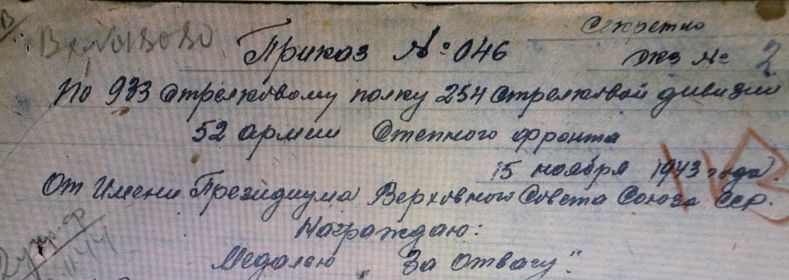 Секретно
Приказ № 046 экз № 2
По 933 стрелковому полку 254 стрелковой дивизии
52 армии Степного фронта
15 ноября 1943 года.
От Имени Президиума Верховного Совета Союза ССР.
Награждаю:
Медалью „За отвагу".